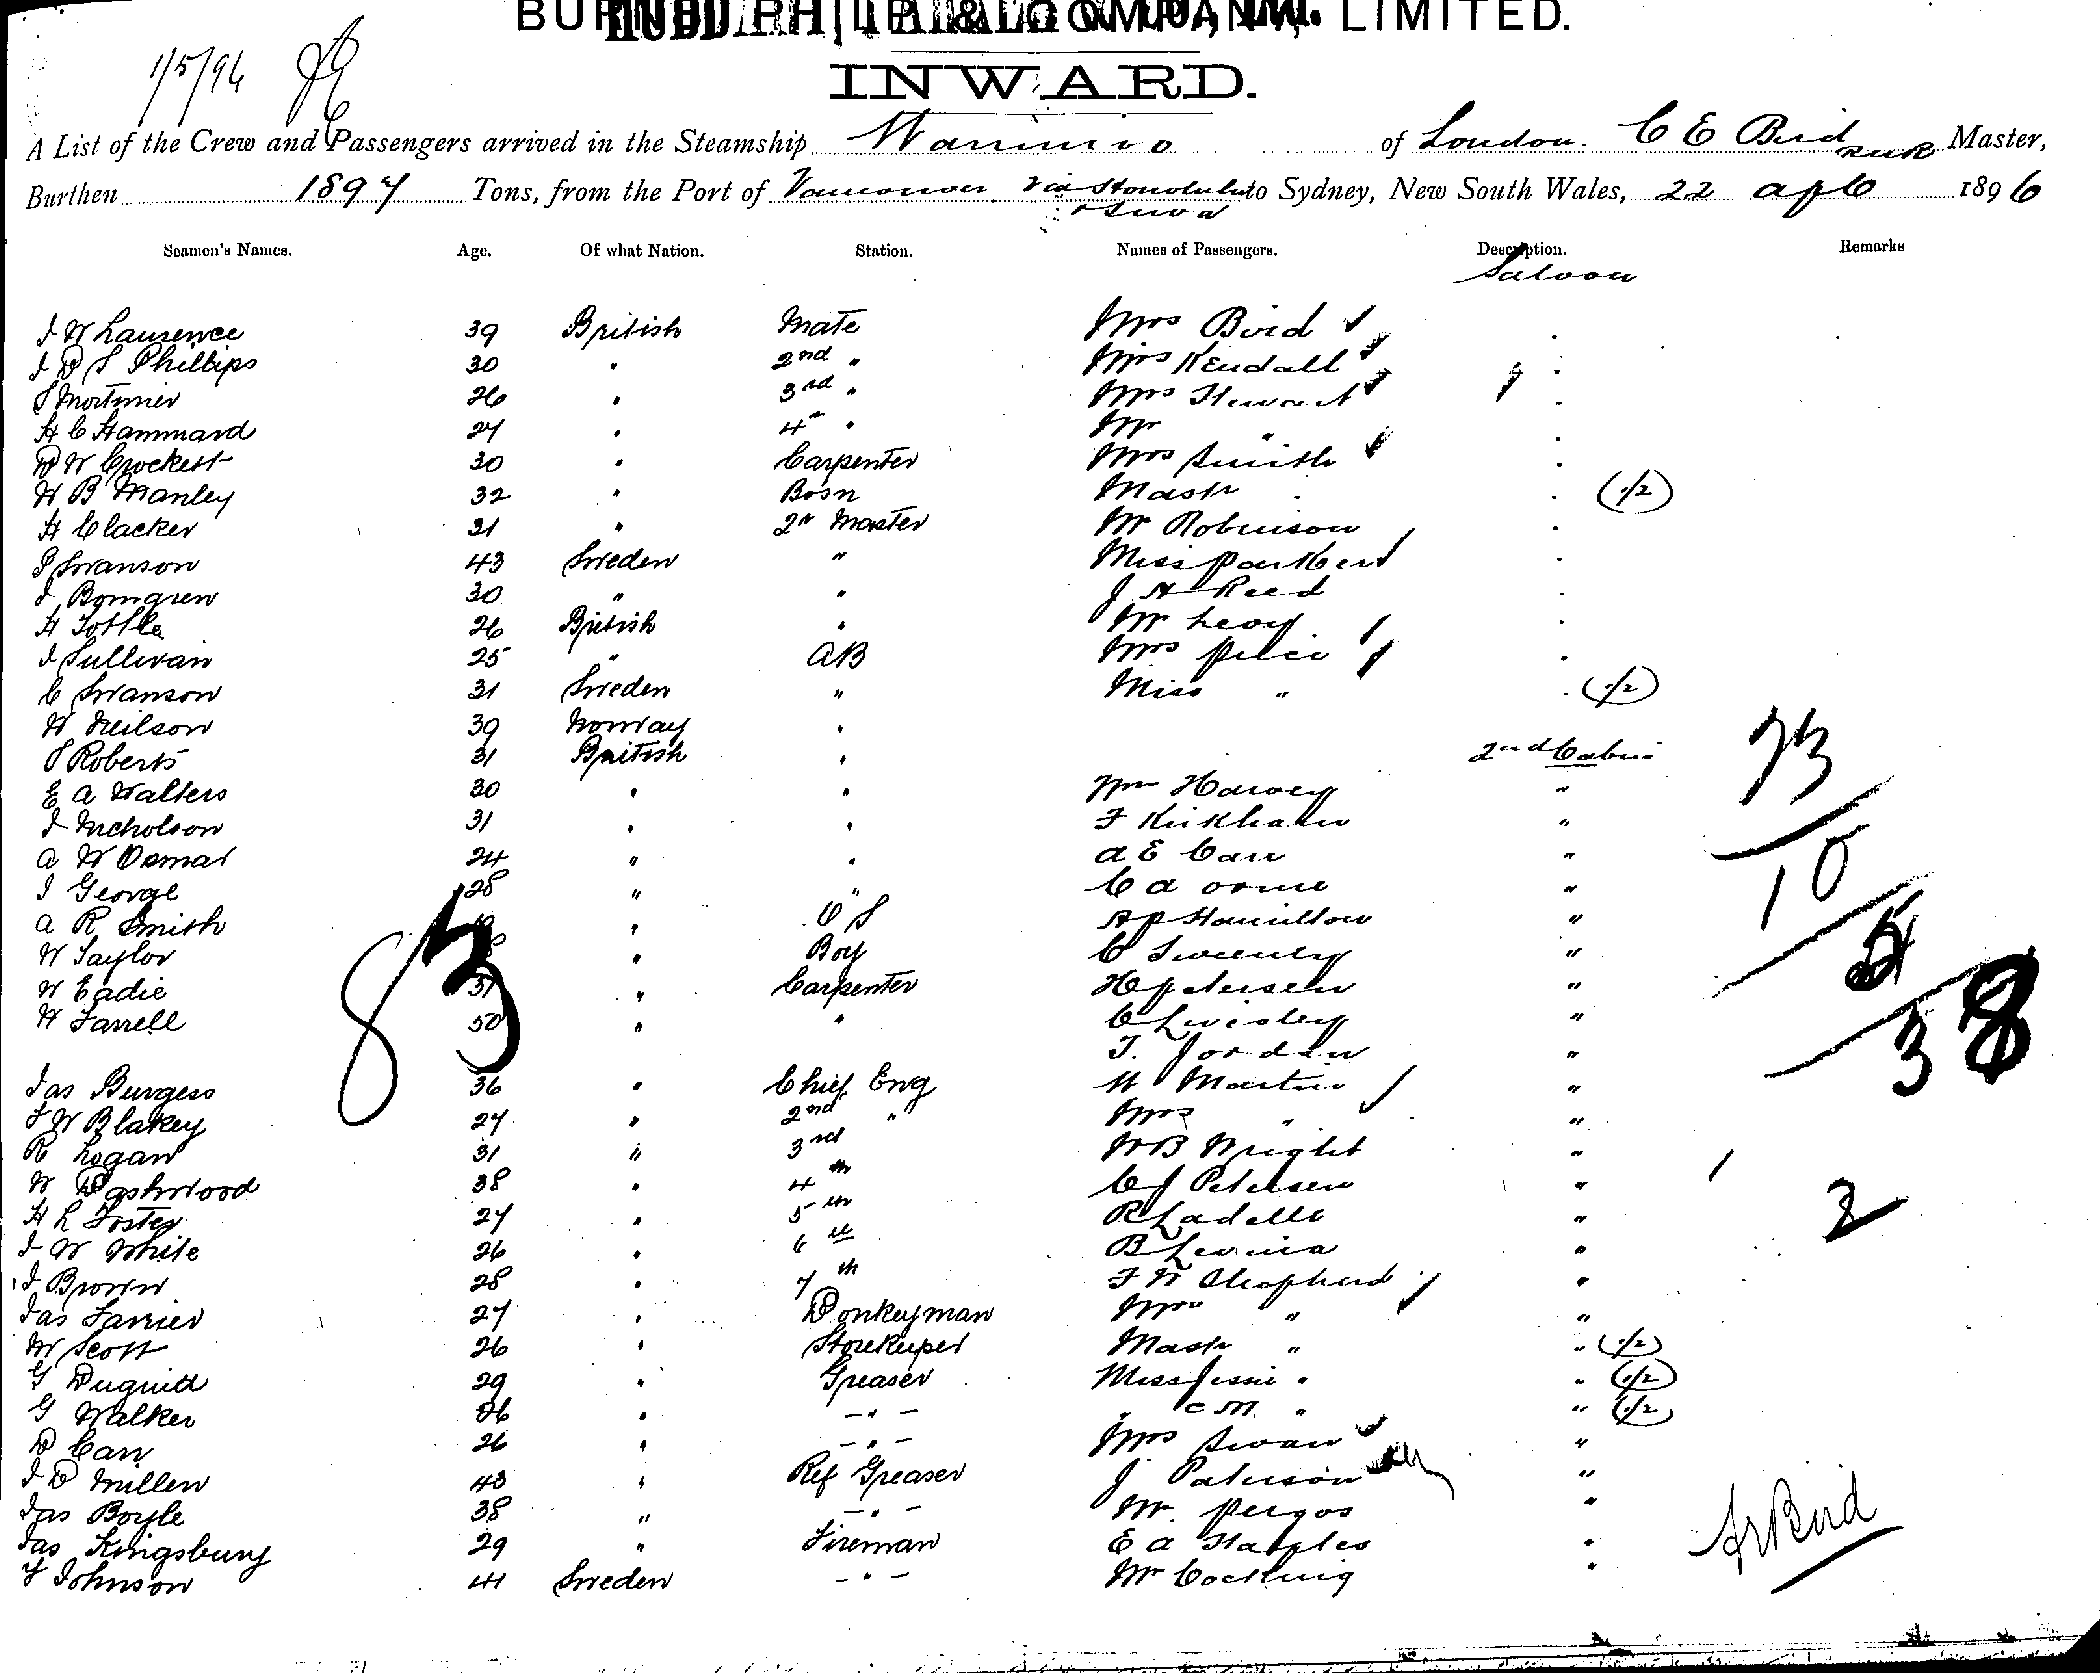 LIMITED.
INWARD.
1/5/96
A List of the Crew and Passengers arrived in the Steamship Warrimoo of London. C E Bird Master,
Burthen 1897 Tons, from the Port of Vancouver via Honolulu to Sydney, New South Wales, 22 1896
& Suva
Seamen's Names. Age. Of what Nation. Station. Names of Passengers. Description. Remarks
Saloon
J W Laurence 39 British Mate Mrs Bird
J D S Phillips 30 " 2nd " Mrs Kendall "
S Mortimer 26 " 3rd " Mrs Stewart "
H C Hammard 27 " 4th " Mr " "
D W Crockett 30 " Carpenter Mrs Smith "
W B Manley 32 " Bosn Mastr " " (1/2)
H Clacker 31 " 2r Master Mr Robinson "
Swanson 43 Sweden " Miss "
J Bomgren 30 " " J H Reed "
H Tottle 26 British " Mr Levy "
J Sullivan 25 " AB Mrs Price "
C Swanson 31 Sweden " Miss " " (1/2)
W Neilson 39 Norway "
S Roberts 31 British " 2nd Cabin
E A Walters 30 " " Wm Harvey "
J Nicholson 31 " " F Kirkham "
A W Osmar 24 " " A E Carr "
J George 28 " " C A Orme "
A R Smith " O S A P Hamilton "
W Taylor " Boy C Sweeney "
W Eadie 51 " Carpenter H Petersen "
W Farrell 50 " " C "
T. Jordan "
Jas Burgess 36 " Chief Eng W Martin "
F W Blakey 27 " 2nd " Mrs " "
R Logan 31 " 3rd W B Wright "
W Dashwood 38 " 4th C J Petersen "
H L Foster 27 " 5th R Ladelle "
J W White 26 " 6th B "
J Brown 28 " 7th F W Shepherd "
Jas Farrier 27 " Donkeyman Mrs " "
W Scott 26 " Storekeeper Mastr " " (1/2)
G Duguid 29 " Greaser Miss Jessie " " (1/2)
G Walker 36 " - " - " C M " " (1/2)
D Carr 26 " - " - Mrs Swan "
J D Millen 43 " Ref Greaser J Paterson "
Jas Boyle 38 " - " - Mr. "
Jas Kingsbury 29 " Fireman E A Staples "
F Johnson 41 Sweden - " - Mr Cocking "
83
73
10
38
2
Bird